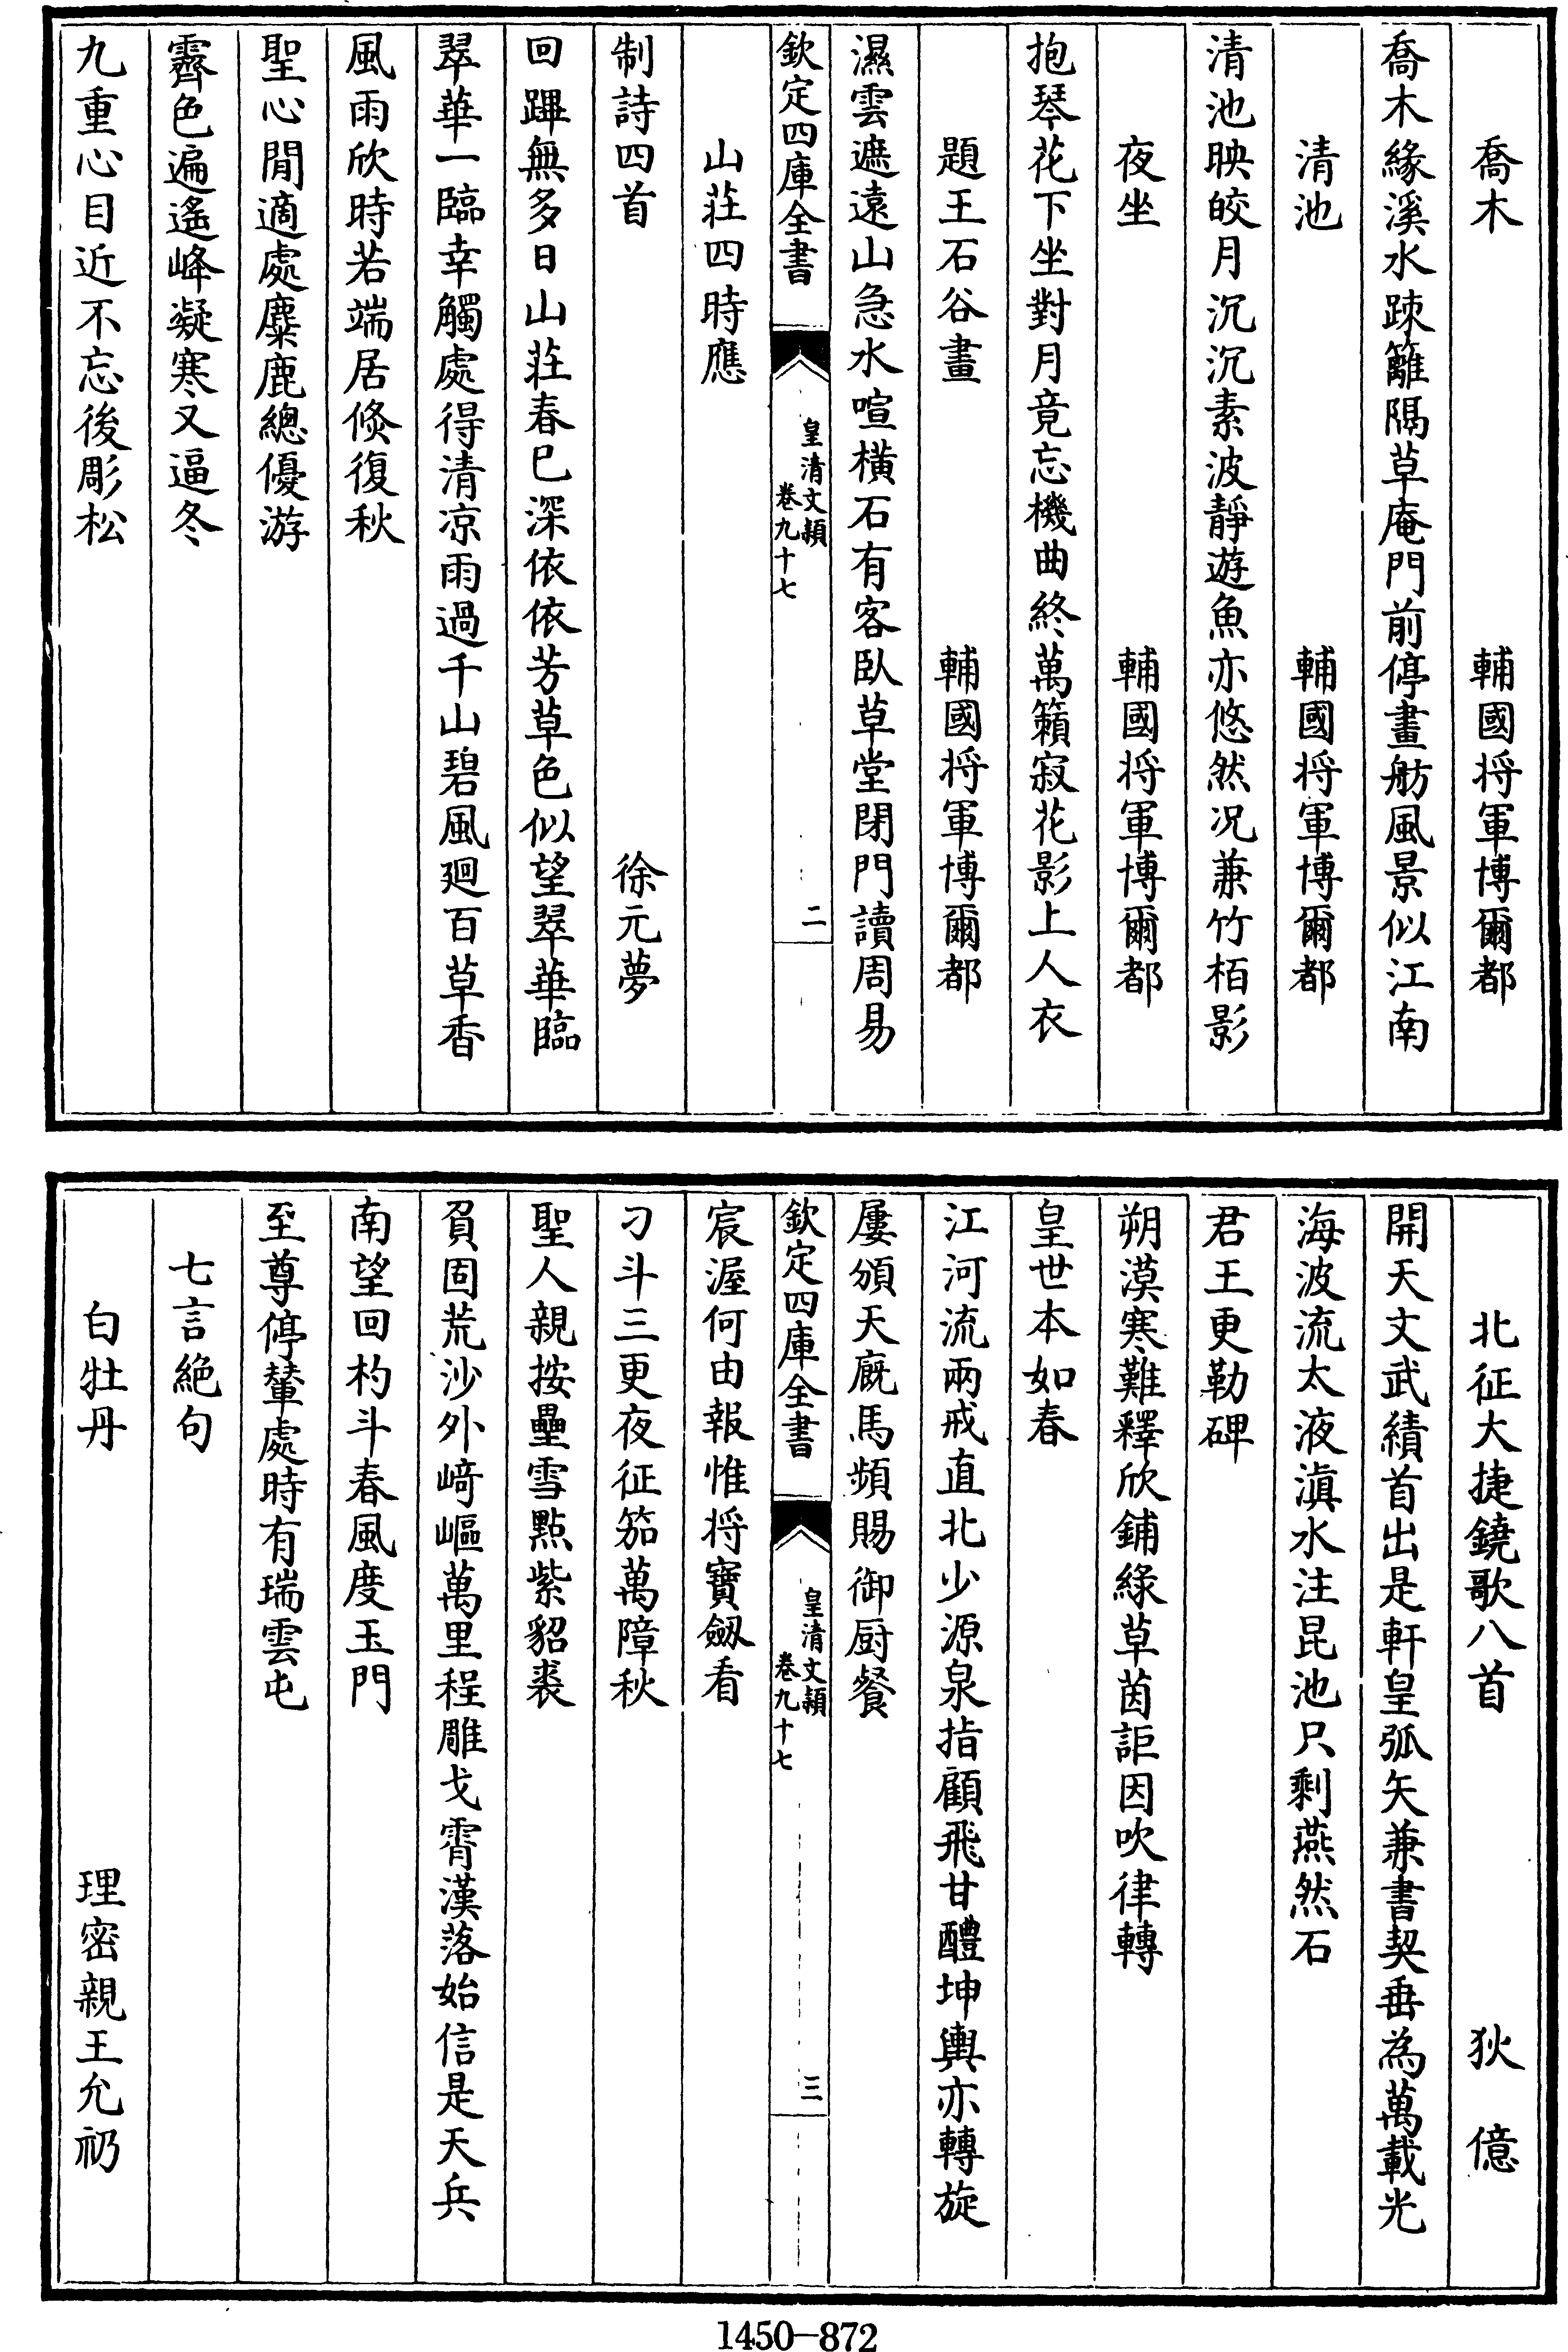 喬木　輔國将軍博爾都
喬木緣溪水踈籬隔草庵門前停畫舫風景似江南
清池　輔國将軍博爾都
清池映皎月沉沉素波靜遊魚亦悠然况兼竹栢影
夜坐　輔國将軍博爾都
抱琴花下坐對月竟忘機曲終萬籟寂花影上人衣
題王石谷畫　輔國将軍博爾都
濕雲遮遠山急水喧橫石有客臥草堂閉門讀周易
欽定四庫全書　皇清文頴　卷九十七　二
山莊四時應
制詩四首　徐元夢
回蹕無多日山莊春巳深依依芳草色似望翠華臨
翠華一臨幸觸處得清凉雨過千山碧風廻百草香
風雨欣時若端居倐復秋
聖心閒適處麋鹿總優游
霽色遍遙峰凝寒又逼冬
九重心目近不忘後彫松
北征大捷鐃歌八首　狄億
開天文武績首出是軒皇弧矢兼書契垂為萬載光
海波流太液滇水注昆池只剩燕然石
君王更勒碑
朔漠寒難釋欣鋪緑草茵詎因吹律轉
皇世本如春
江河流兩戒直北少源泉指顧飛甘醴坤輿亦轉旋
屢頒天廐馬頻賜御厨餐
欽定四庫全書　皇清文頴　卷九十七　三
宸渥何由報惟将寶劔看
刁斗三更夜征笳萬障秋
聖人親按壘雪點紫貂裘
負固荒沙外崎嶇萬里程雕戈霄漢落始信是天兵
南望回杓斗春風度玉門
至尊停輦處時有瑞雲屯
七言絶句
白牡丹　理密親王允礽
1450-872